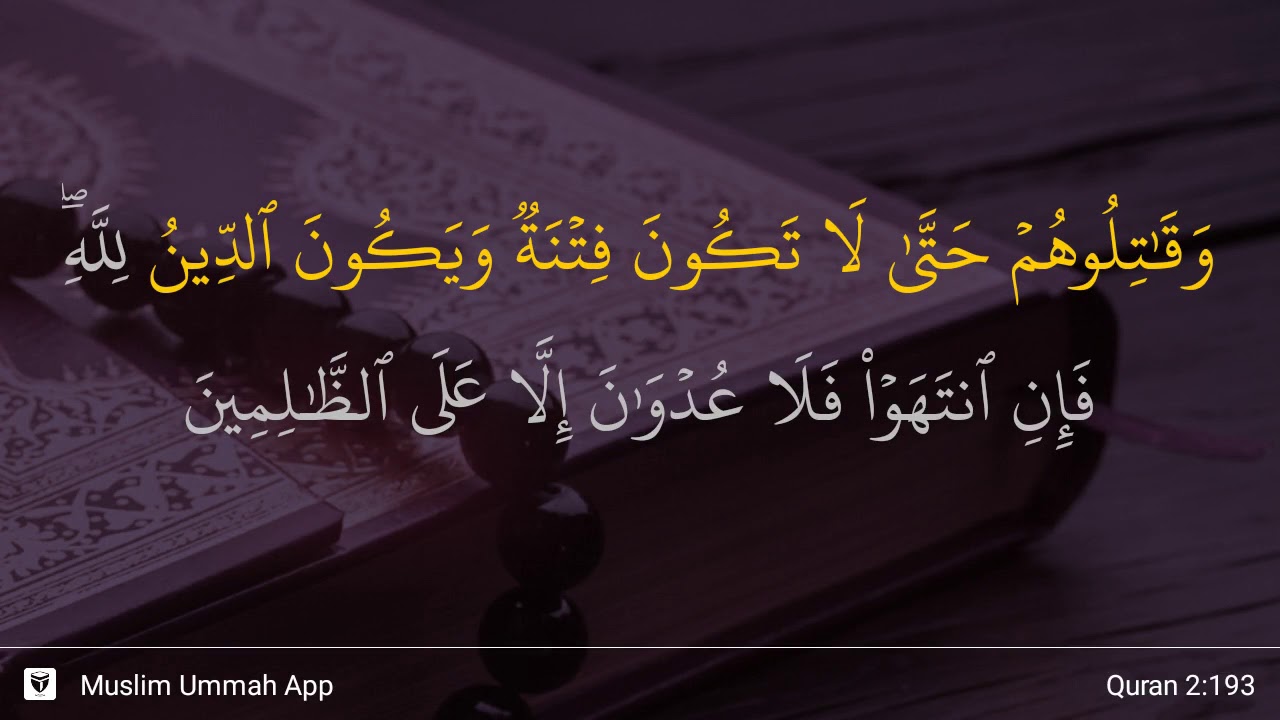 وَقَـٰتِلُوهُمۡ حَتَّىٰ لَا تَكُونَ فِتۡنَةٞ وَيَكُونَ ٱلدِّينُ لِلَّهِۖ
فَإِنِ ٱنتَهَوۡاْ فَلَا عُدۡوَٰنَ إِلَّا عَلَى ٱلظَّـٰلِمِينَ
Muslim Ummah App
Quran 2:193